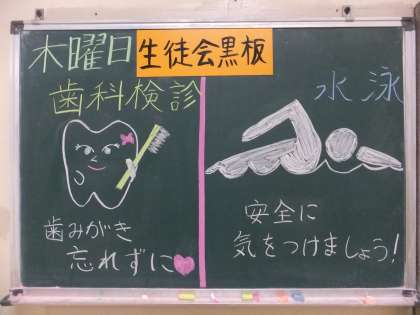 木曜日
生徒会黒板
歯科検診
歯みがき
忘れずに
水泳
安全に
気をつけましょう!